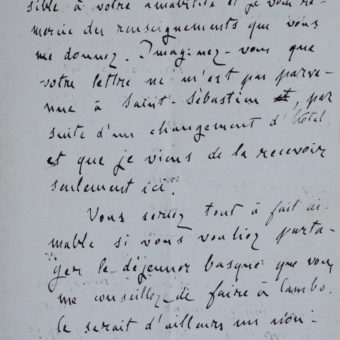 sible à votre amabilité et je vous re-
mercie des renseignements que vous
me donnez. Imaginez-vous que
votre lettre ne m'est pas parve-
nue à Saint-Sébastien et, par
suite d'un changement d'hôtel
et que je viens de la recevoir
seulement ici.
Vous seriez tout à fait ai-
mable si vous vouliez parta-
ger le déjeuner basque que vous
me conseillez de faire à Cambo.
Ce serait d'ailleurs un